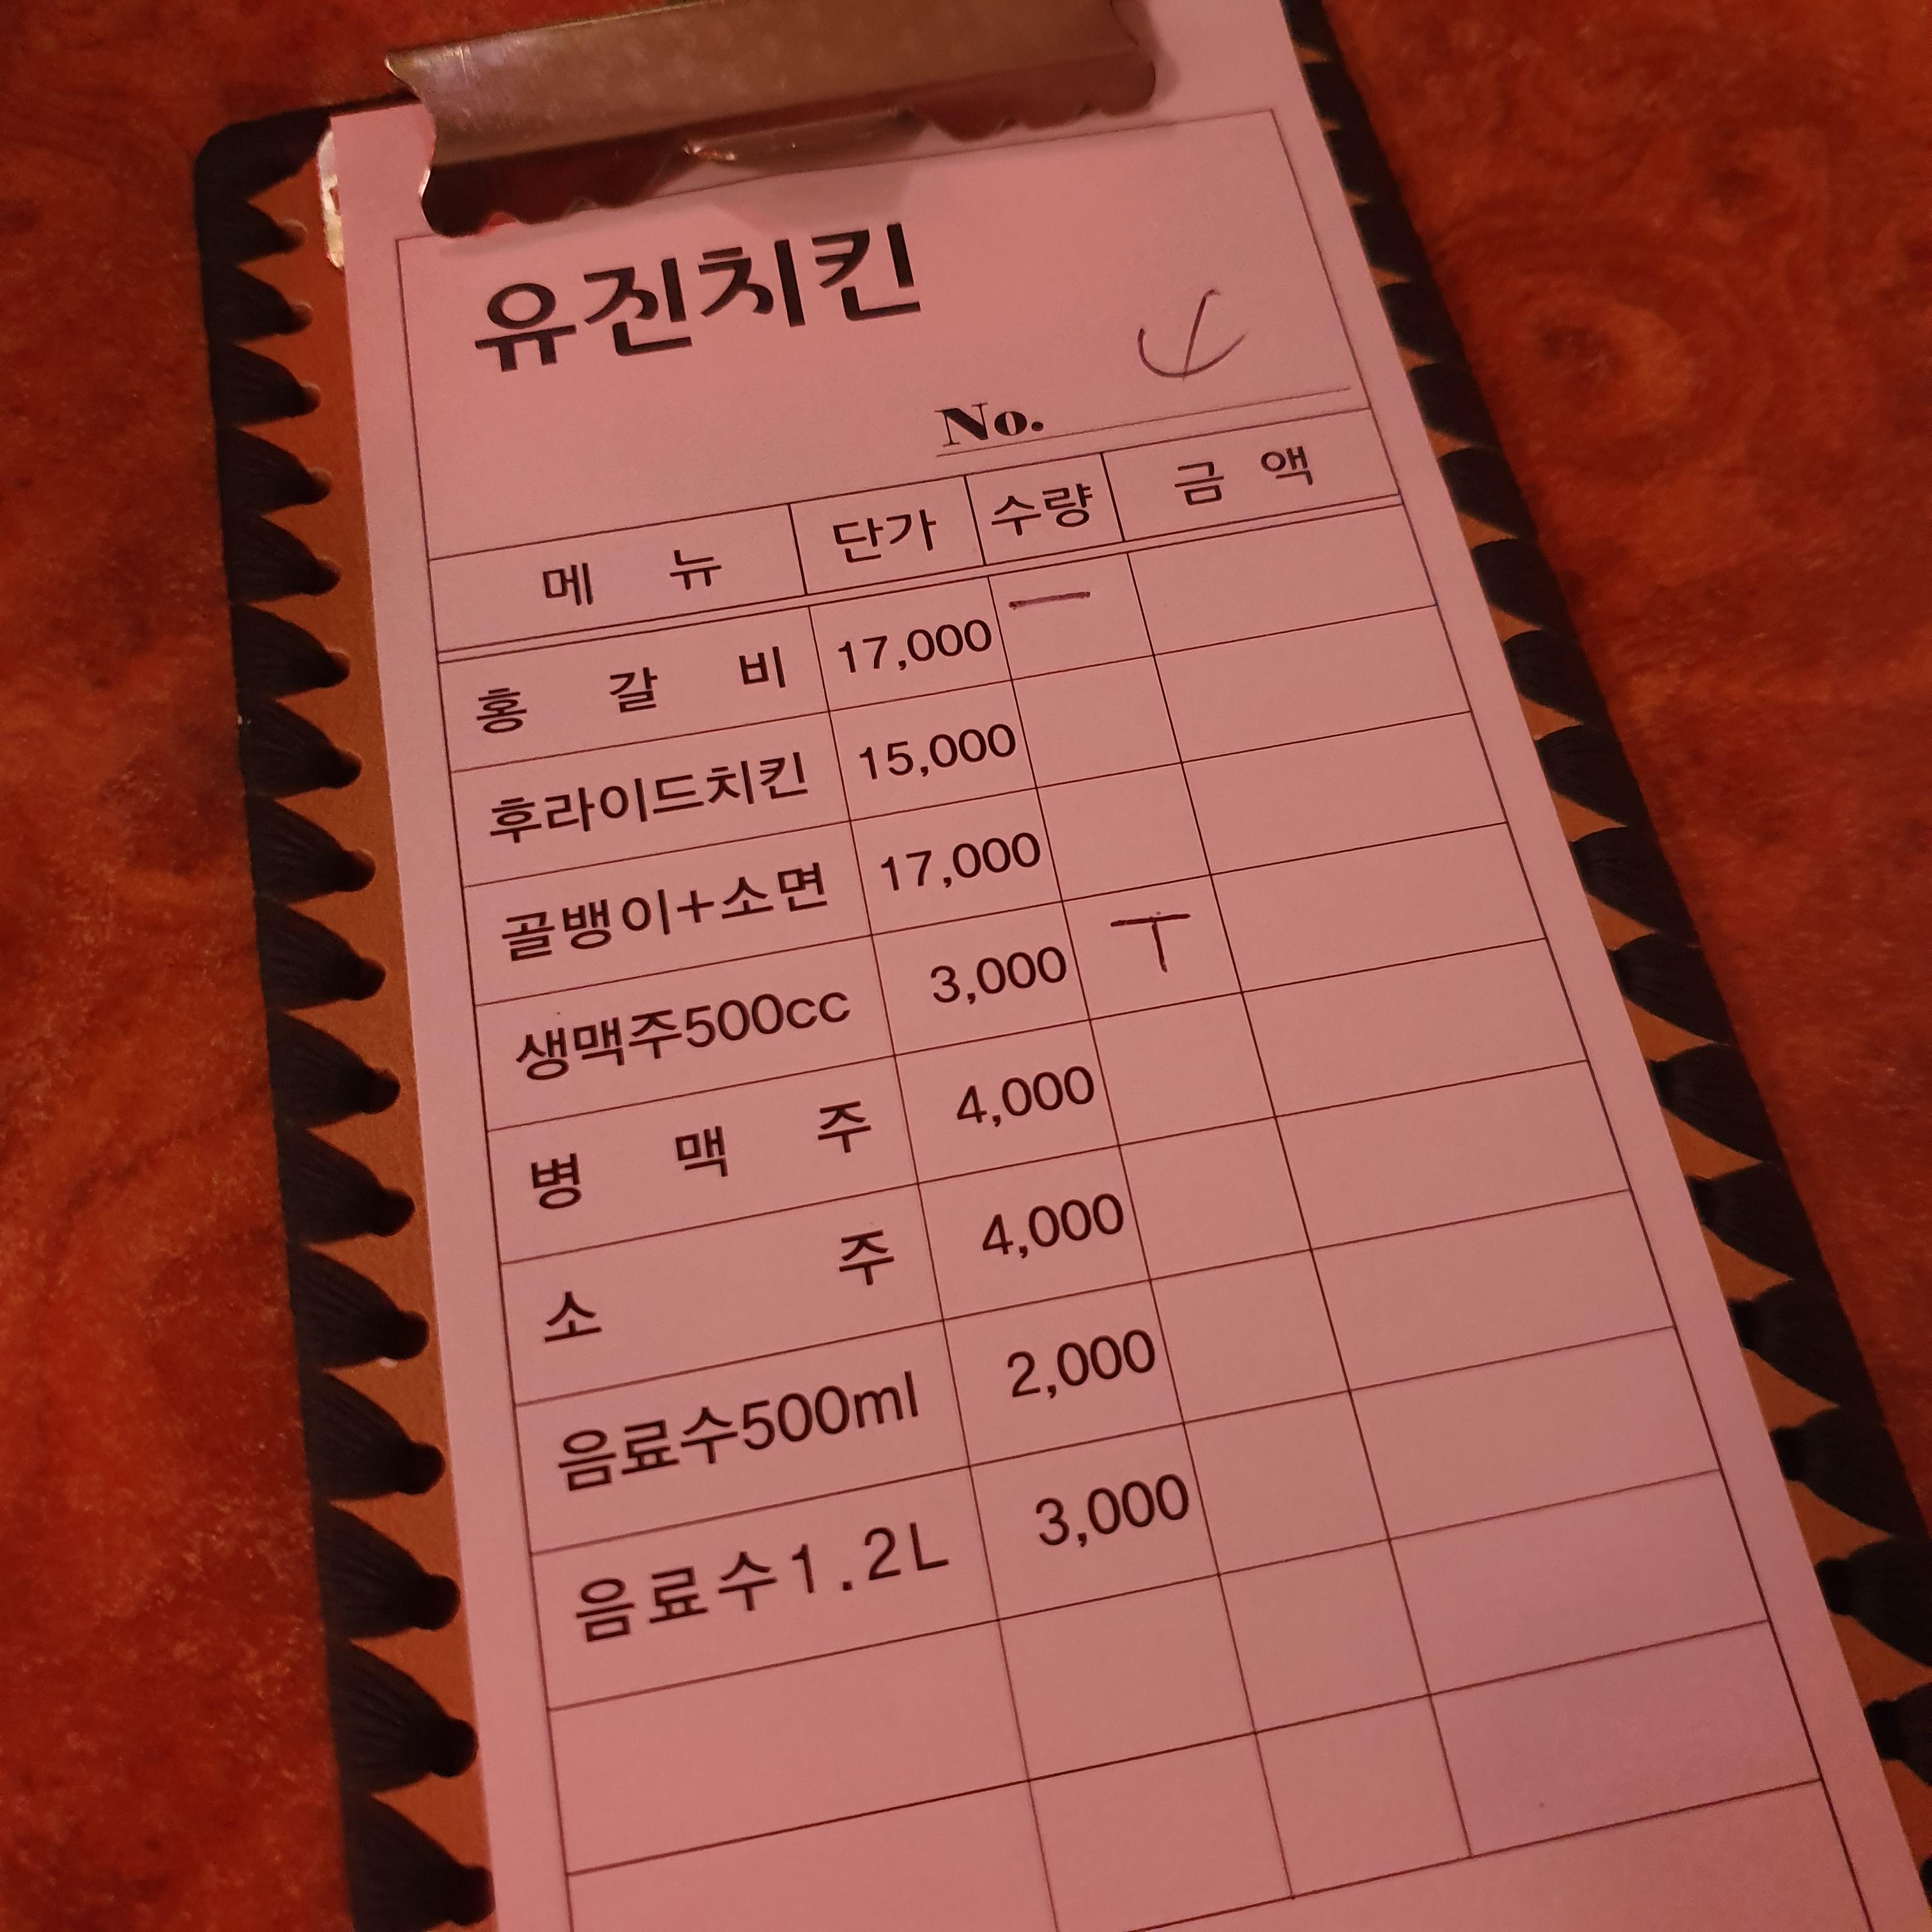 유진치킨
No. 4
메 뉴 단가 수량 금 액
홍 갈 비 17,000 一
후라이드치킨 15,000
골뱅이+소면 17,000
생맥주500cc 3,000 丅
병 맥 주 4,000
소 주 4,000
음료수500ml 2,000
음료수1.2L 3,000